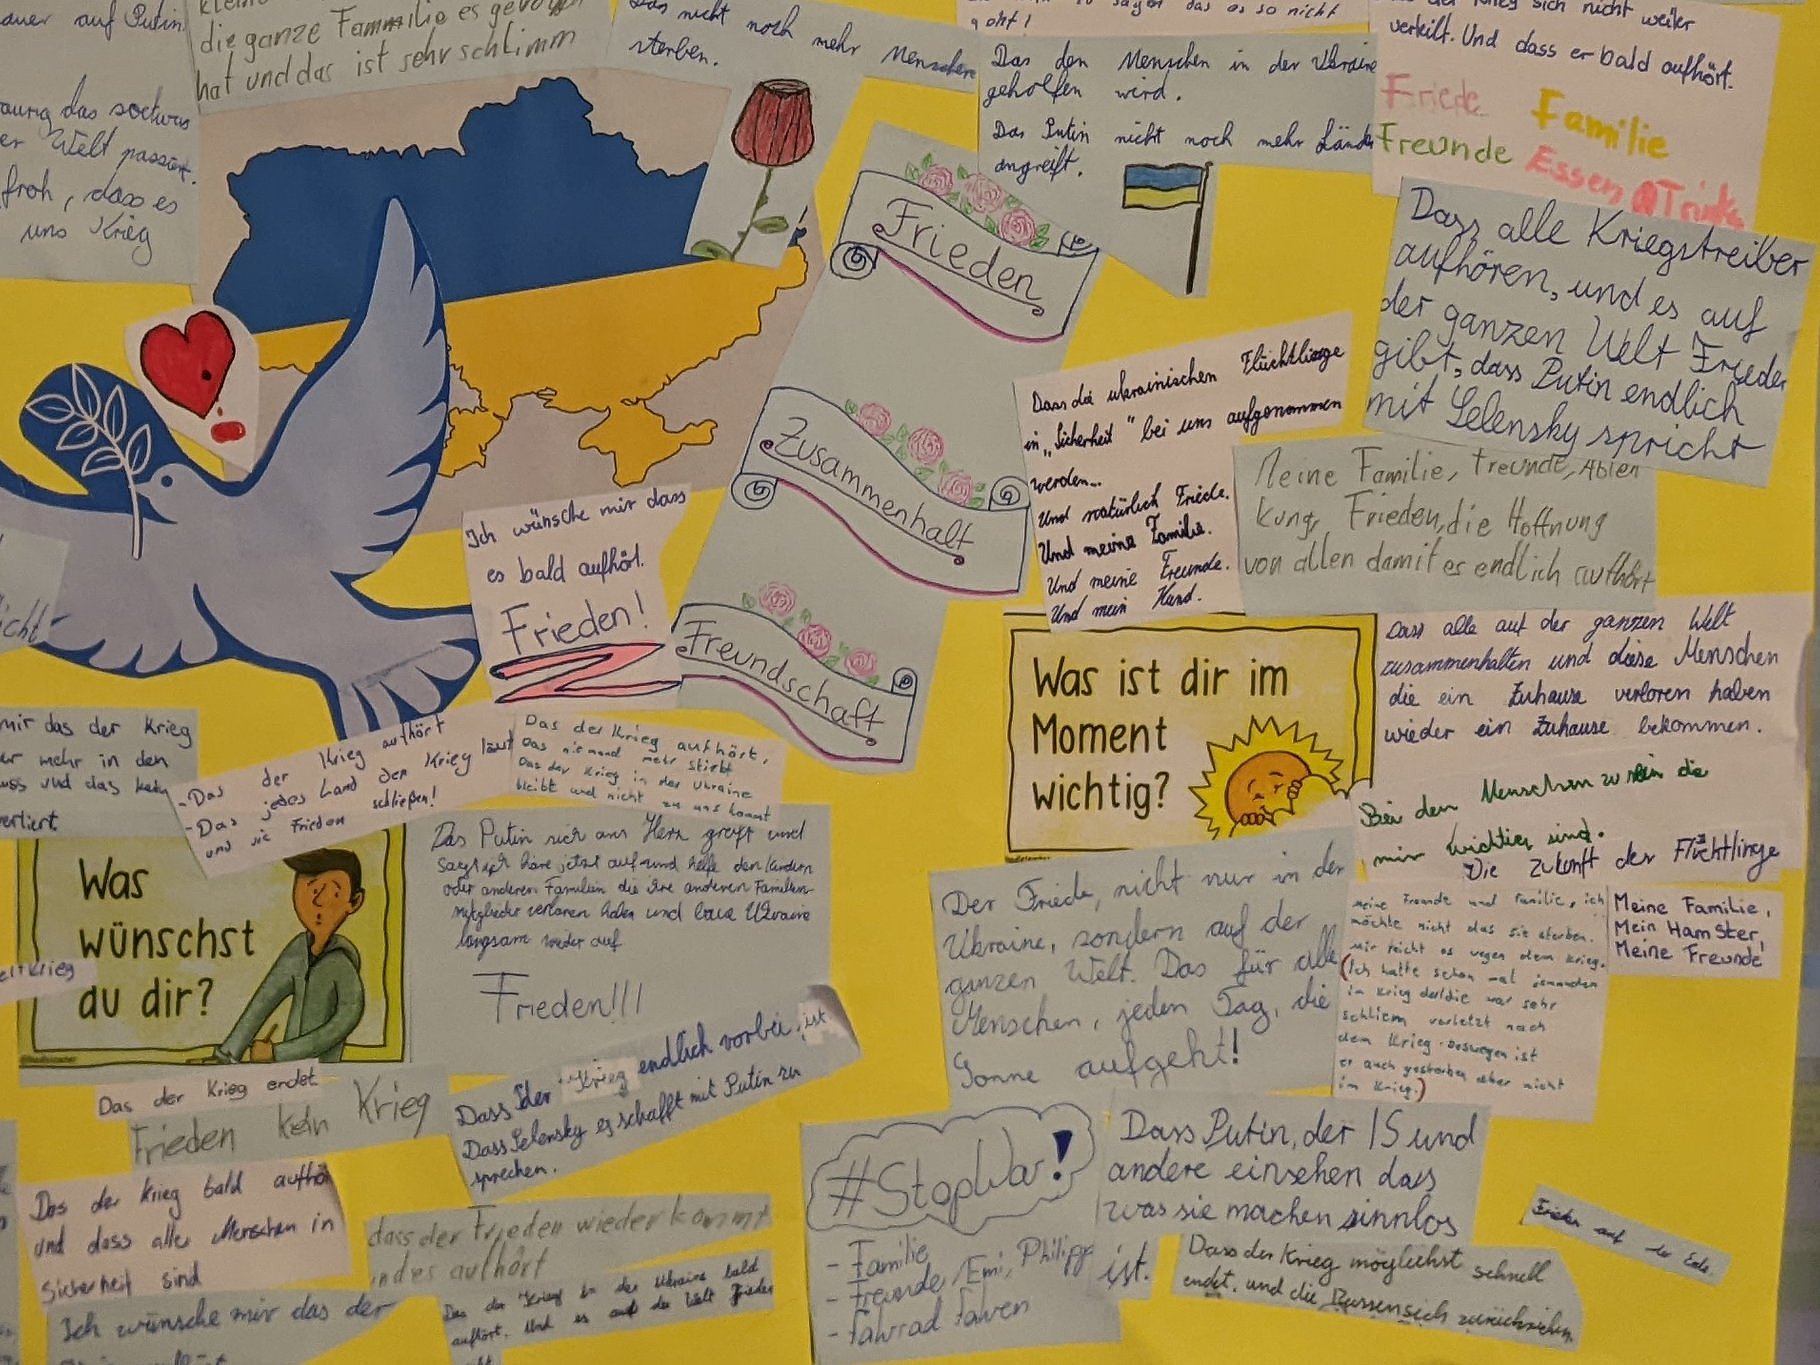 auer auf Putin
die ganze Fammilie es
hat und das ist sehr schlimm
das sowas
er Welt passiert.
froh, dass es
uns Krieg
Das nicht noch mehr Menschen
sterben.
das es so nicht
geht!
Das den Menschen in der Ukraine
geholfen wird.
Das Putin nicht noch mehr Lände
angreift.
der Krieg sich nicht weiter
verteilt. Und dass er bald aufhört.
Friede Familie
Freunde Essen
Dass alle Kriegstreiber
aufhören, und es auf
der ganzen Welt Frieden
gibt, dass Putin endlich
mit Selensky spricht
Frieden
Zusammenhalt
Freundschaft
Dass die ukrainischen Flüchtlinge
in „Sicherheit" bei uns aufgenommen
werden...
Und natürlich Friede.
Und meine Familie.
Und meine Freunde.
Und mein Hund.
Meine Familie, Freunde, Ablen
kung, Frieden, die Hoffnung
von allen damit es endlich aufhört
Ich wünsche mir dass
es bald aufhört.
Frieden!
Was ist dir im
Moment
wichtig?
Dass alle auf der ganzen Welt
zusammenhalten und diese Menschen
die ein Zuhause verloren haben
wieder ein Zuhause bekommen.
Bei den Menschen zu sein die
mir wichtig sind.
Die Zukunft der Flüchtlinge
icht
mir das der Krieg
er mehr in den
uss und das kein
verliert.
-Das der Krieg aufhört
-Das jedes Land den Krieg
und sie Frieden schließen!
Das der Krieg aufhört,
Das niemand mehr stirbt
Das der Krieg in der Ukraine
bleibt und nicht zu uns kommt
Das Putin sich ans Herz greift und
sagt ich höre jetzt auf und helfe den Kindern
oder anderen Familien die ihre anderen Familien-
mitglieder verloren haben und baue Ukraine
langsam wieder auf
Frieden!!!
Was
wünschst
du dir?
eltkrieg
Der Friede, nicht nur in der
Ukraine, sondern auf der
ganzen Welt. Das für alle
Menschen, jeden Tag, die
Sonne aufgeht!
meine Freunde und Familie, ich
möchte nicht das sie sterben.
mir reicht es wegen dem Krieg.
(Ich hatte schon mal jemanden
im Krieg der/die war sehr
schliem verletzt nach
dem Krieg deswegen ist
er auch gestorben aber nicht
im Krieg.)
Meine Familie,
Mein Hamster,
Meine Freunde
Das der Krieg endet.
Frieden kein Krieg
Dass der Krieg endlich vorbei ist
Dass Selensky es schafft mit Putin zu
sprechen.
Das der Krieg bald aufhör
und dass alle Menschen in
Sicherheit sind
dass der Frieden wieder kommt
und es aufhört
Ich wünsche mir das der
Das der Krieg in der Ukraine bald
aufhört. Und es auf der Welt Frieden
#StopWar!
- Familie
- Freunde, Emi, Philipp
- Fahrad fahren
Dass Putin, der IS und
andere einsehen dass
was sie machen sinnlos
ist.
Dass der Krieg möglichst schnell
endet, und die Russen sich zurückziehen.
Frieden auf der Erde.